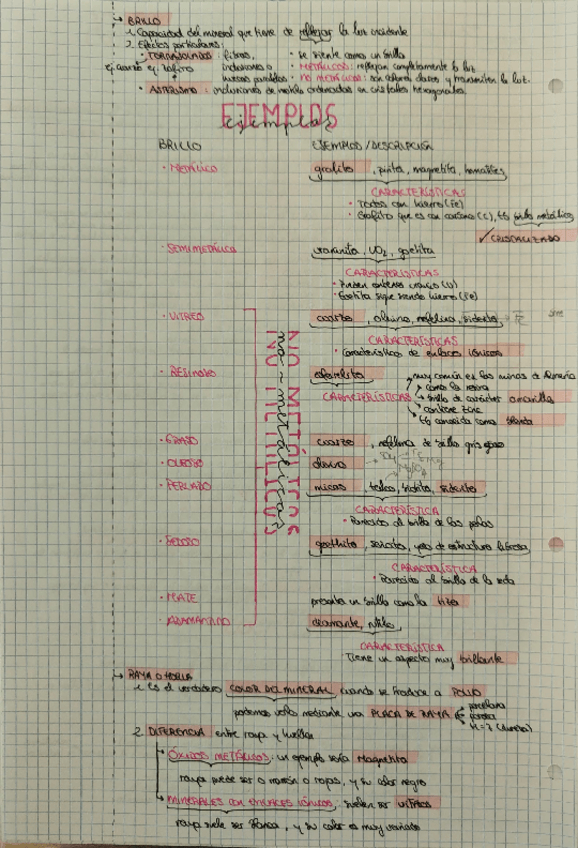 → BRILLO
1. Capacidad del mineral que tiene de reflejar la luz incidente
2. Efectos particulares:
• TORNASOLADOS: fibras, • se siente como un brillo
inclusiones o • METÁLICOS: reflejan completamente la luz
maclas paralelas • NO METÁLICOS: son colores claros y transmiten la luz.
• ASTERISMO: inclusiones de rutilo ordenadas en cristales hexagonales.
EJEMPLOS
ejemplos
BRILLO EJEMPLOS/DESCRIPCIÓN
• METÁLICO grafito, pirita, magnetita, hematites
CARACTERÍSTICAS
• Todos con hierro (Fe)
• Grafito que es con carbono (C), tb brillo metálico
✓ CRISTALIZADO
• SEMIMETÁLICA uraninita, UO2, goetita
CARACTERÍSTICAS
• Pueden contener uranio (U)
• Goetita sigue siendo hierro (Fe)
• VÍTREO cuarzo, olivino, nefelina, siderita
CARACTERÍSTICAS
• Característicos de enlaces iónicos
NO METÁLICOS
no-metálicos
• RESINOSO esfalerita
CARACTERÍSTICAS
muy común en las minas de Almería
como la resina
brillo de carácter amarillo
contiene zinc
tb conocida como blenda
• GRASO cuarzo, nefelina de brillo gris graso
• OLEOSO olivino
• PERLADO micas, talco, siderita
CARACTERÍSTICA
• Parecido al brillo de las perlas
• SEDOSO goethita, sericita, yeso de estructura fibrosa
CARACTERÍSTICA
• Parecido al brillo de la seda
• MATE presenta un brillo como la tiza
• ADAMANTINO diamante, rutilo
CARACTERÍSTICA
Tiene un aspecto muy brillante
→ RAYA O HUELLA
1. Es el verdadero COLOR DEL MINERAL cuando se traduce a POLVO
podemos verlo mediante una PLACA DE RAYA
porcelana
H = 7 (dureza)
2. DIFERENCIA entre raya y huella
ÓXIDOS METÁLICOS: un ejemplo sería Magnetita
raya puede ser o marrón o rojas, y su color negro
MINERALES CON ENLACES IÓNICOS: suelen ser vítreos
raya suele ser blanca, y su color es muy variado